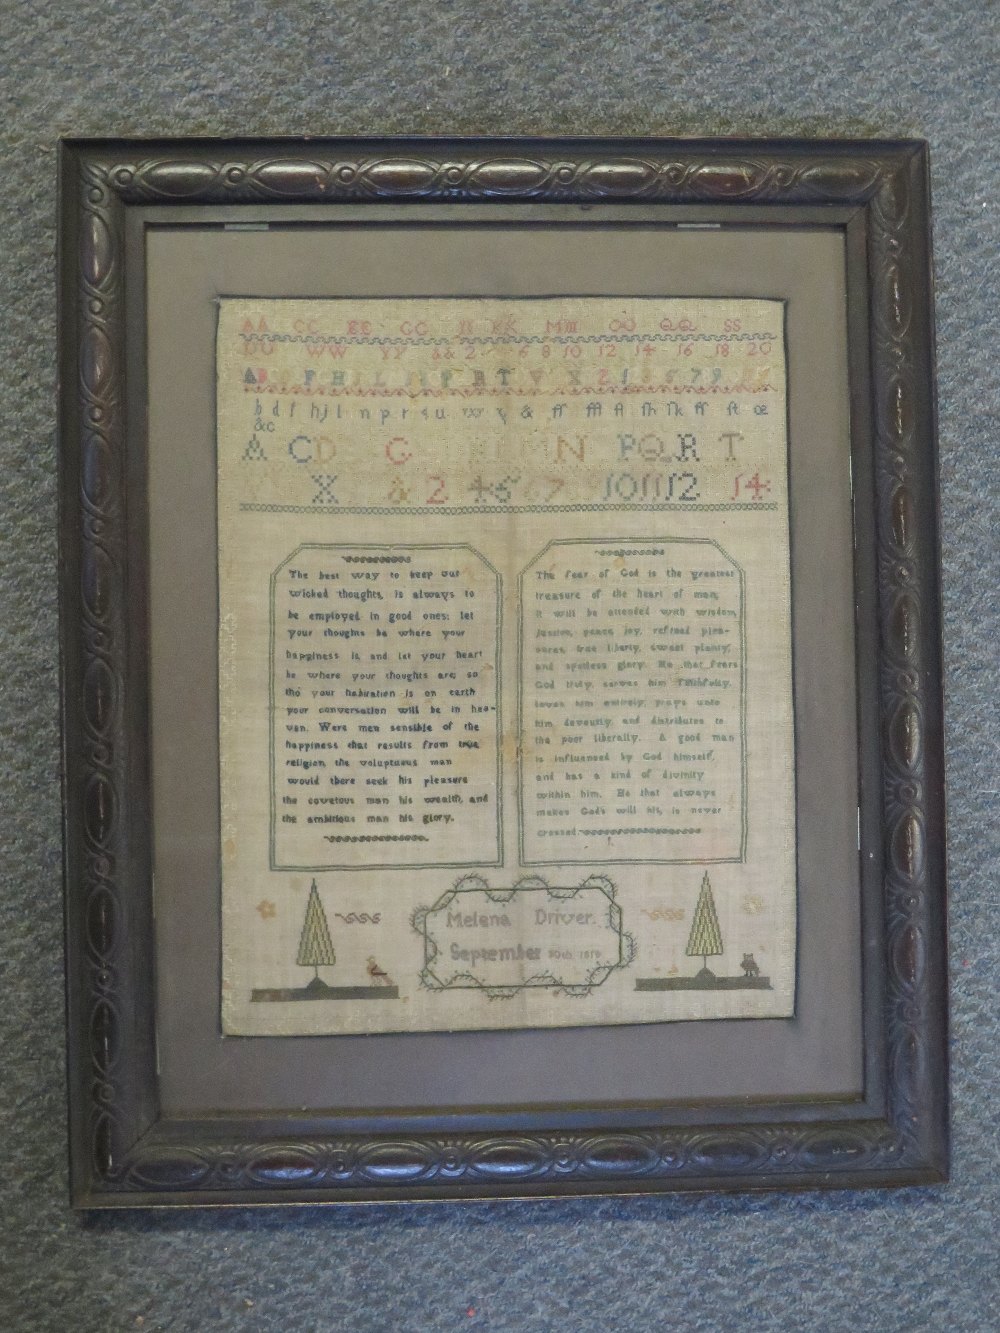 AA CC EE GG II KK MM OO QQ SS
UU WW YY && 2 6 8 10 12 14 16 18 20
A B F H L P R T V X 2 6 7 8
b d f h j l n p r s u w y & ff ffl fl fh fk ff ft œ
&c
A C D G N P Q R T
X & 2 4 5 6 7 10 11 12 14
The best way to keep out
wicked thoughts, is always to
be employed in good ones; let
your thoughts be where your
happiness is, and let your heart
be where your thoughts are; so
tho' your habitation is on earth
your conversation will be in hea-
ven. Were men sensible of the
happiness that results from true
religion, the voluptuous man
would there seek his pleasure
the covetous man his wealth, and
the ambitious man his glory.
The fear of God is the greatest
treasure of the heart of man;
it will be attended with wisdom,
justice, peace, joy, refined plea-
sures, true liberty, sweet plenty,
and spotless glory. He that fears
God truly, serves him faithfully,
loves him entirely, prays unto
him devoutly, and distributes to
the poor liberally. A good man
is influenced by God himself,
and has a kind of divinity
within him. He that always
makes God's will his, is never
crossed
Melena Driver.
September